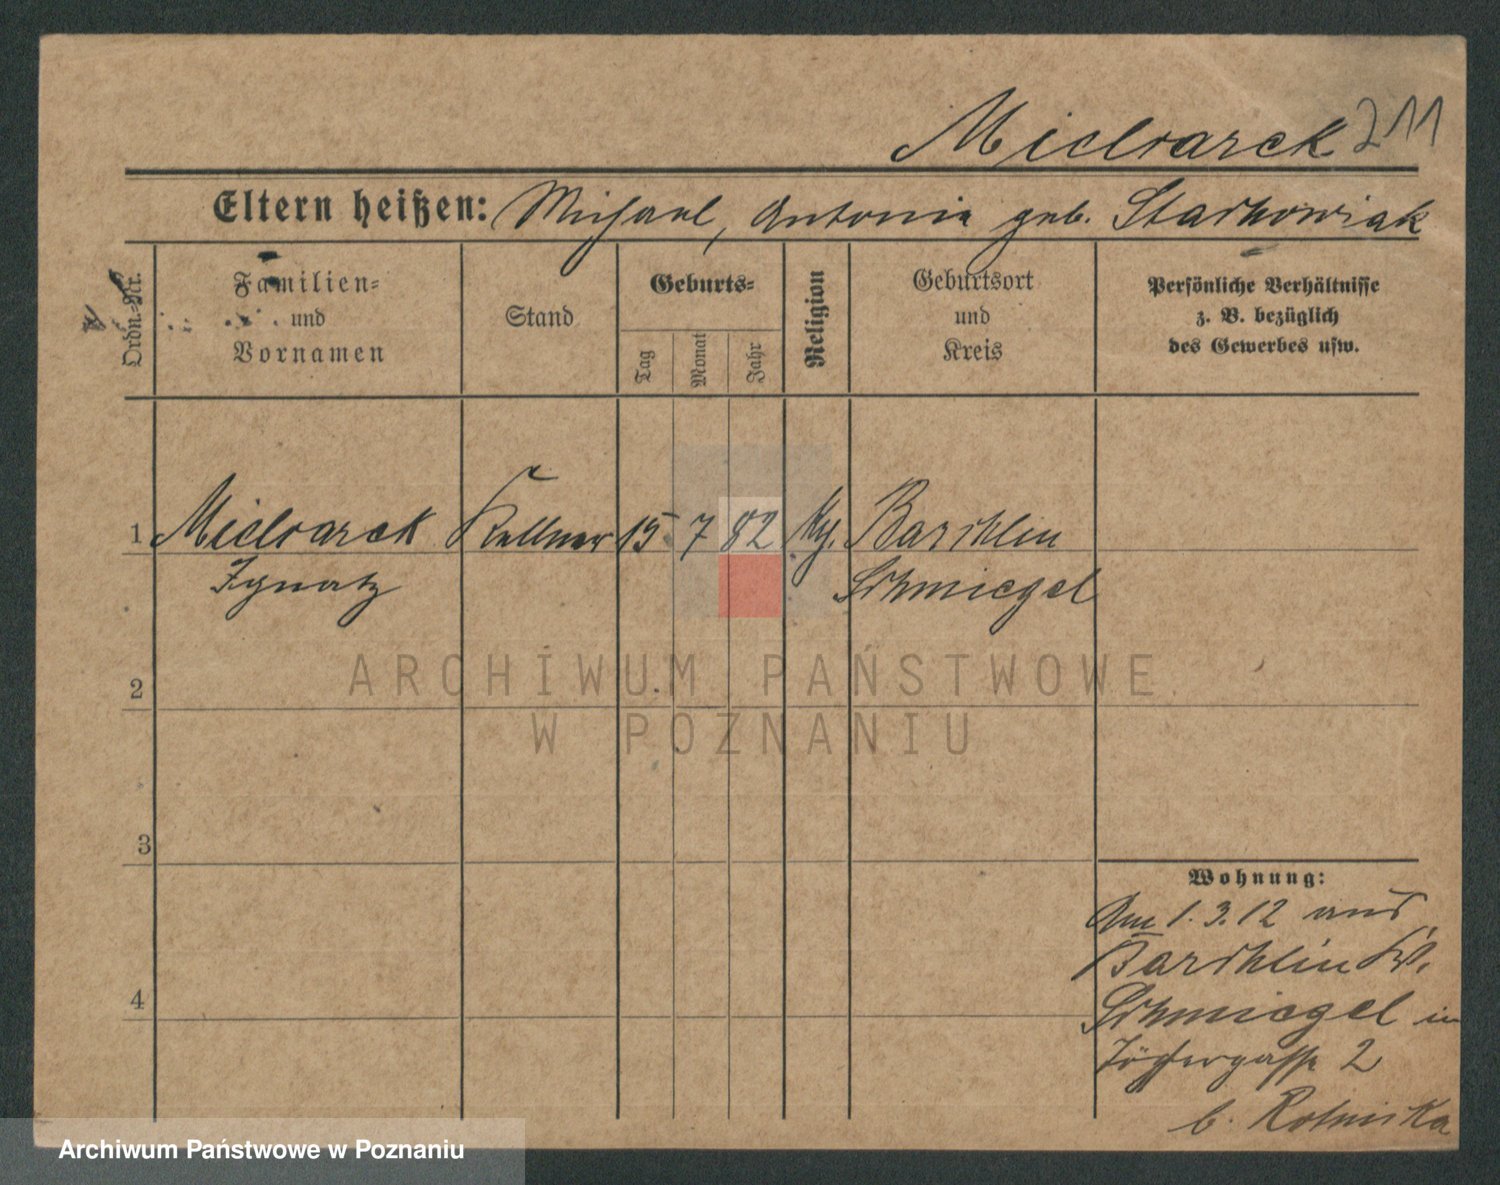 Micloarek 211
Eltern heißen: Michael, Antonia geb. Stachowiak
Ordn.-Nr.
Familien-
und
Vornamen
Stand
Geburts-
Tag
Monat
Jahr
Religion
Geburtsort
und
Kreis
Persönliche Verhältnisse
z. B. bezüglich
des Gewerbes usw.
1 Micloarek Kellner 15 7 82 Barchlin
Ignatz Schmiegel
ARCHIWUM PAŃSTWOWE
2
W POZNANIU
3
Wohnung:
Am 1. 3. 12 aus
Barchlin Kr.
4
Schmiegel in
Töpfergasse 2
b. Rotnicka
Archiwum Państwowe w Poznaniu